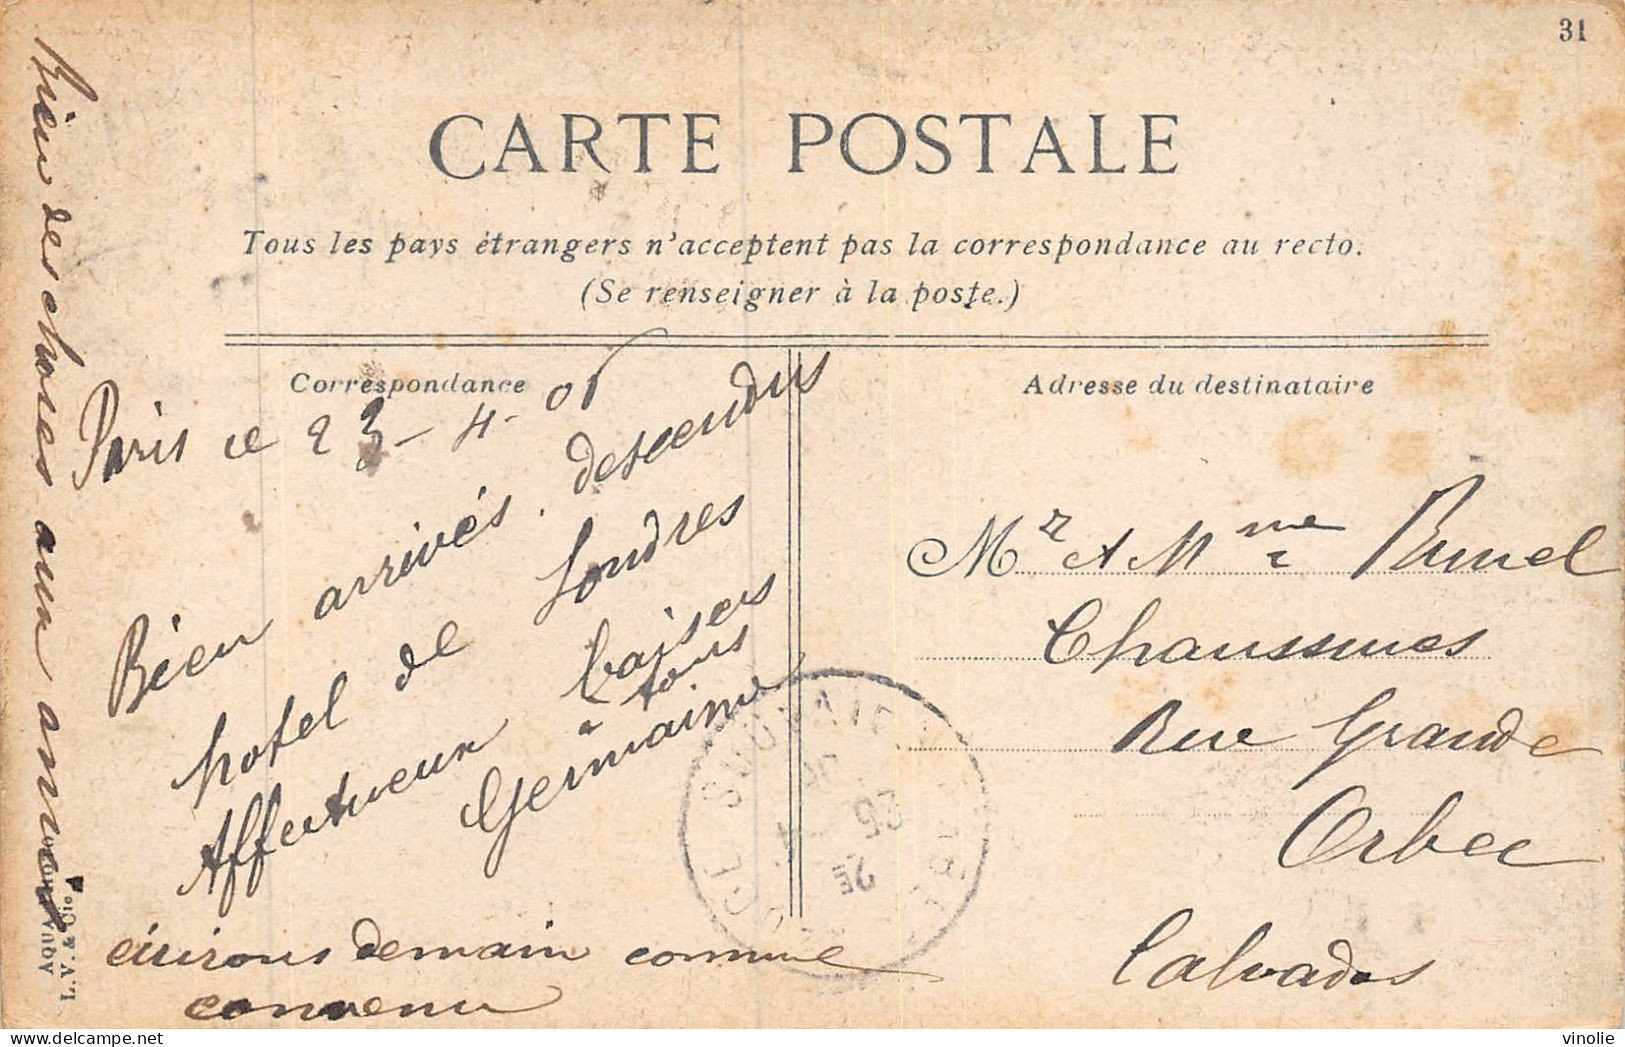 31
CARTE POSTALE
Tous les pays étrangers n'acceptent pas la correspondance au recto.
(Se renseigner à la poste.)
Correspondance
Paris ce 23-4-05
Bien arrivés. descendus
hotel de Londres
Affectueux baisers
à tous
Germaine
écrirons demain comme
convenu
Bien des choses aux amis
Adresse du destinataire
Mr & Mme
Chaussures
Rue Grande
Orbec
Calvados
L. V. & Cie
AQUA PHOTO
vinolie